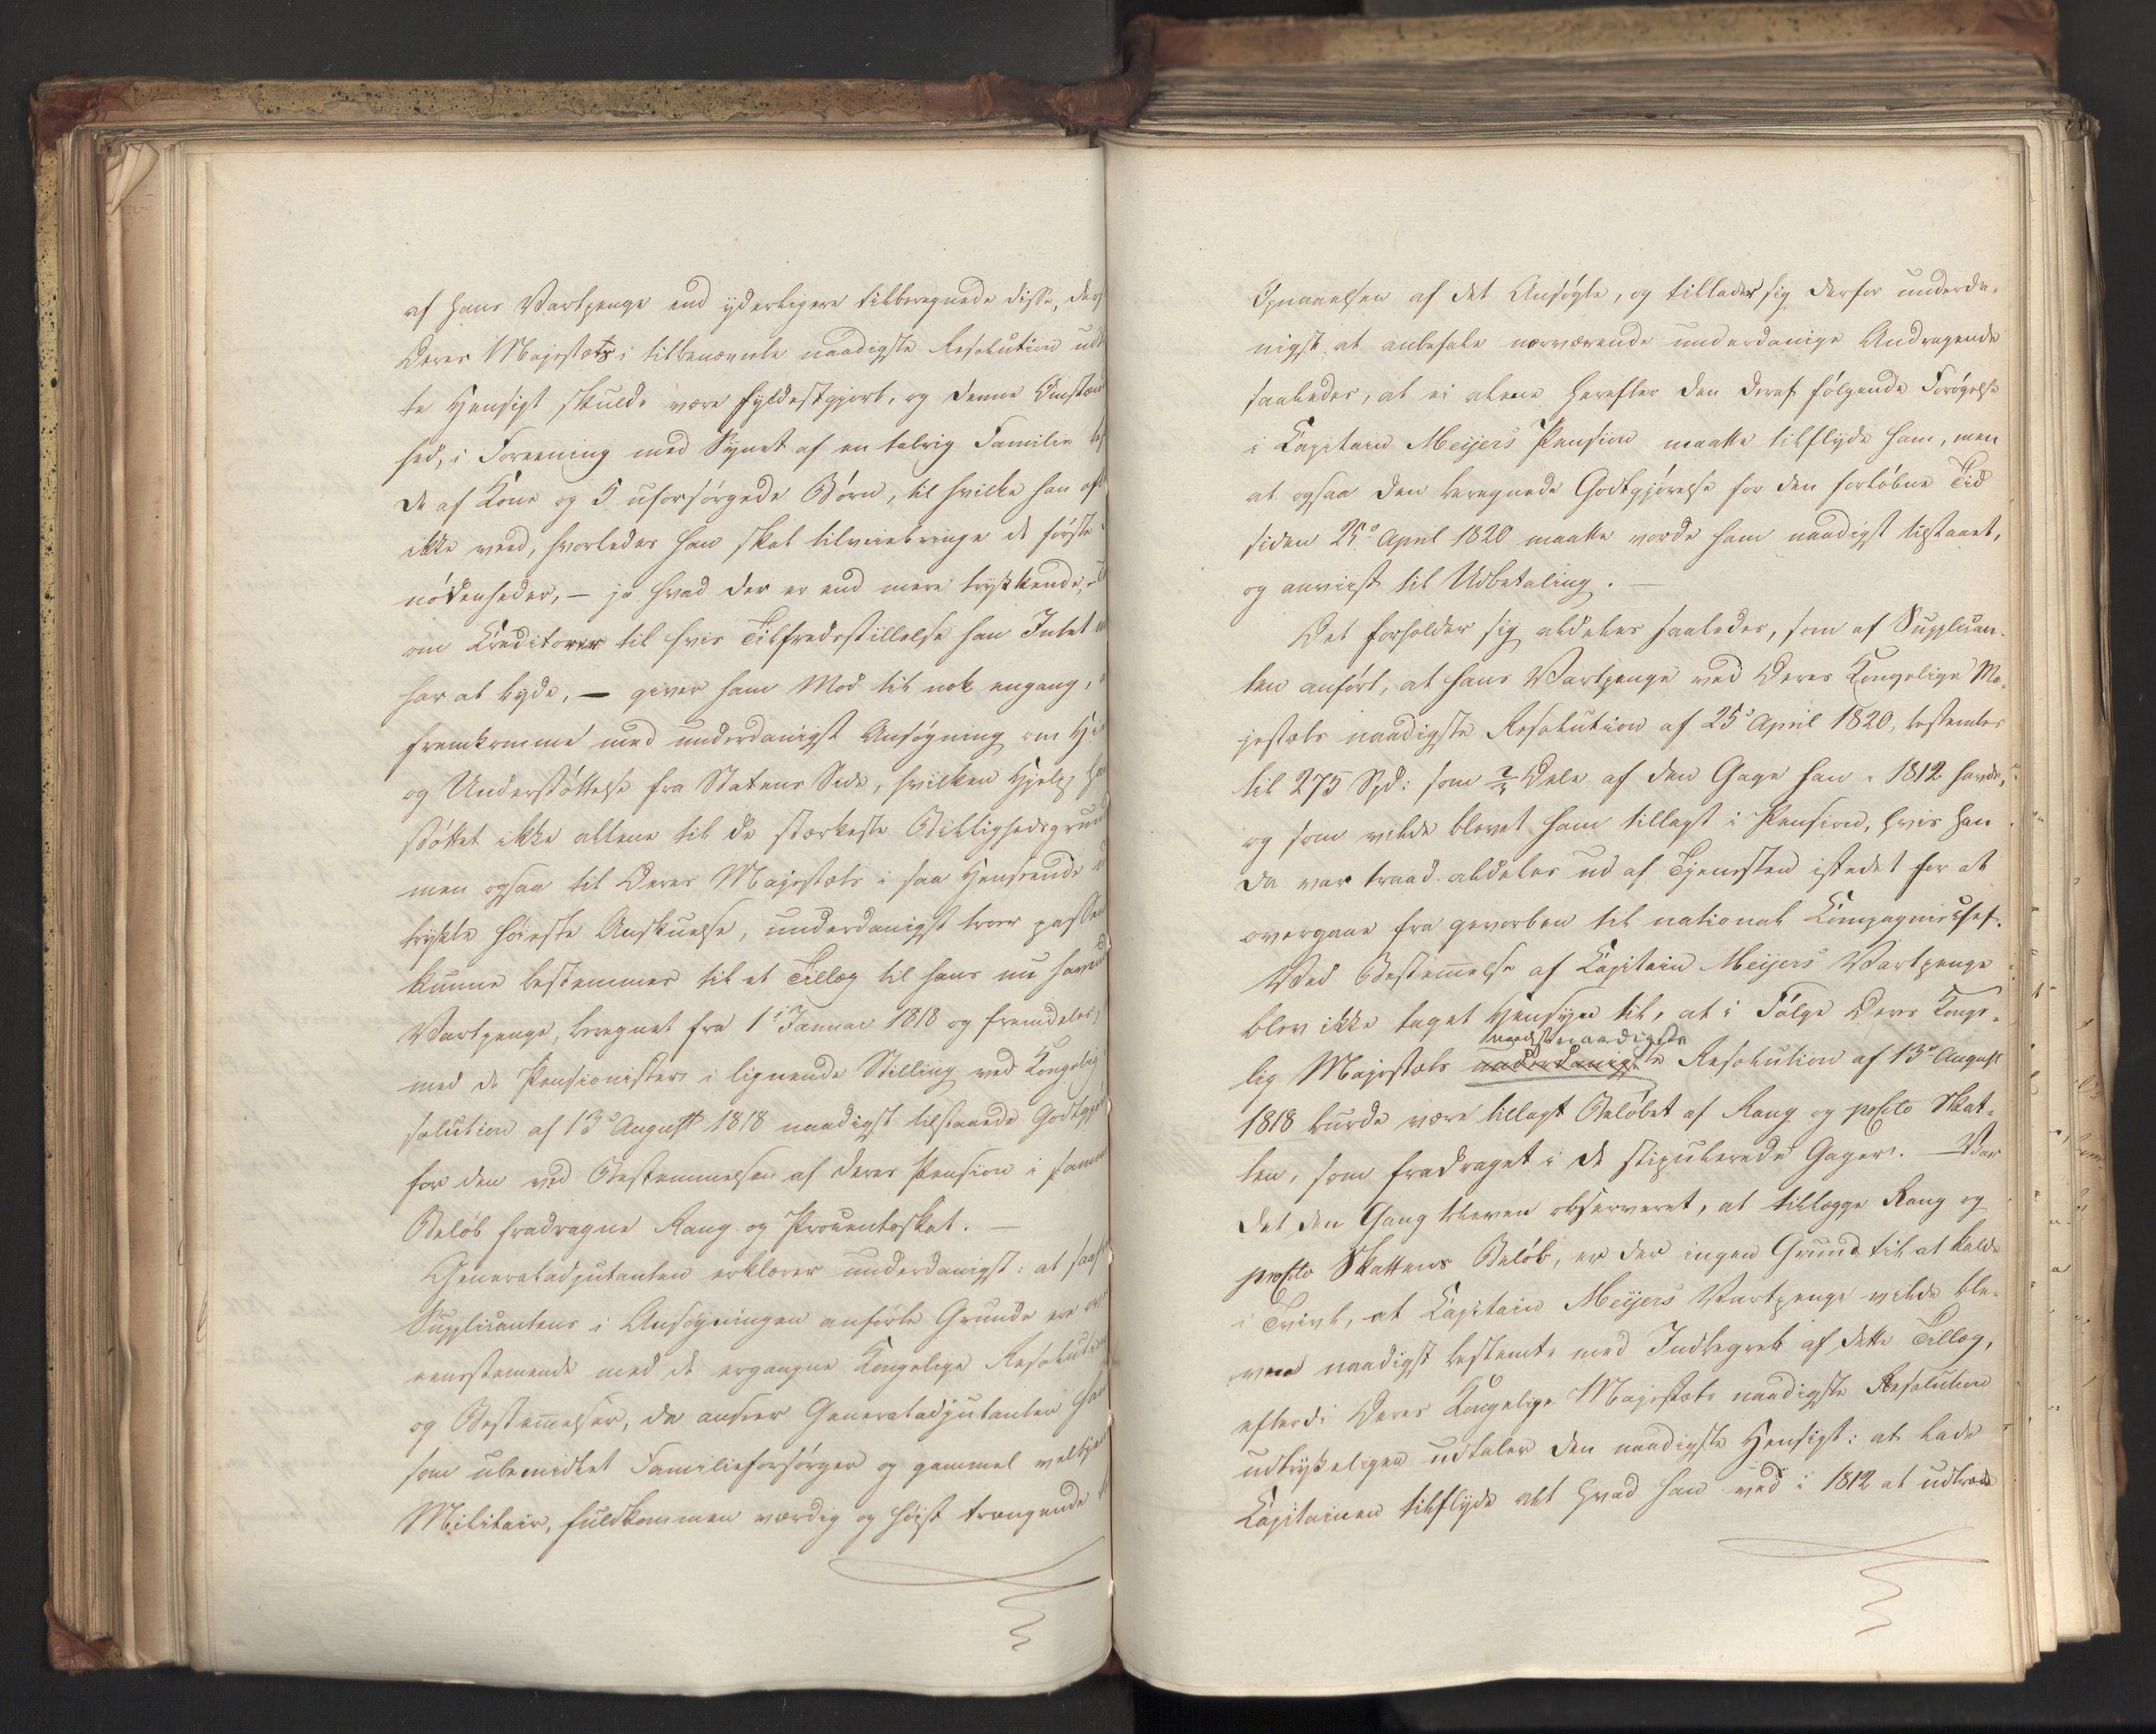 af hans Vartpenge end yderligere tilberegnede disse, ders
Deres Majestæts i tilbenævnte naadigste Resolution udt
te Hensigt skulde være fyldestgjort, og denne Omstæn
hed, i Forening med Synet af en talrig Familie
de af Kone og 5 uforsørgede Børn, til hvilke han oft
ikke veed, hvorledes han skal tilveiebringe de første
nødenheder, – ja hvad der er end mere trykkende,
om Creditorer til hvis Tilfredsstillelse han Intet
har at byde, – giver ham Mod til nok engang,
fremkomme med underdanigst Ansøgning om
og Understøttelse fra Statens Side, hvilken Hjelp
støttet ikke allene til de stærkeste Billighedsgrun
men ogsaa til Deres Majestæts i saa Henseende
trykte høieste Anskuelse, underdanigst troer passe
kunne bestemmes til et Tillæg til hans nu havend
Vartpenge, beregnet fra 1ste Januar 1818 og fremdeles,
med de Pensionisters i lignende Stilling ved Kongelig
solution af 13de August 1818 naadigst tilstaaede Godtgjør
for den ved Bestemmelsen af deres Pension i samme
Beløb fradragne Rang og Procentoskat. –
Generaladjutanten erklærer underdanigst: at saa
Supplicantens i Ansøgningen anførte Grunde ere over
eensstemende med de ergangne Kongelige Resolution
og Bestemmelser, da anseer Generaladjutanten ham
som ubemidlet Familieforsørger og gammel veltjen
Militair, fuldkommen værdig og høist trængende
Opnaaelsen af det Ansøgte, og tillader sig derfor underda-
nigst at anbefale nærværende underdanige Andragende
saaledes, at ei alene herefter den deraf følgende Forøgelse
i Capitain Meijers Pension maatte tilflyde ham, men
at ogsaa den beregnede Godtgjørelse for den forløbne Tid
siden 25de April 1820 maatte vorde ham naadigst tilstaaet,
og anviist til Udbetaling. –
Det forholder sig aldeles saaledes, som af Supplican-
ten anført, at hans Vartpenge ved Deres Kongelige Ma-
jestæts naadigste Resolution af 25de April 1820, bestemtes
til 275 Spd: som 2/3 Dele af den Gage han i 1812 havde,
og som vilde blevet ham tillagt i Pension, hvis han
da var traad aldeles ud af Tjenesten istedet for at
overgaae fra gevorben til national Compagniechef.
Ved Bestemelse af Capitain Meijers Vartpenge
blev ikke taget Hensyn til, at i Følge Deres Konge-
naadigste
lig Majestæts underdanigste Resolution af 13de August
1818 burde være tillagt Beløbet af Rang og proCto Skat-
ten, som fradraget i de stipulerede Gager. – Var
det den Gang bleven observeret, at tillægge Rang og
proCto Skattens Beløb, er der ingen Grund til at kalde
i Tvivl, at Capitain Meijers Vartpenge vilde ble-
ven naadigst bestemte med Indbegreb af dette Tillæg,
efterdi Deres Kongelige Majestæts naadigste Resolution
udtrykeligen udtaler den naadigste Hensigt: at lade
Capitainen tilflyde alt hvad han ved i 1812 at udtræde